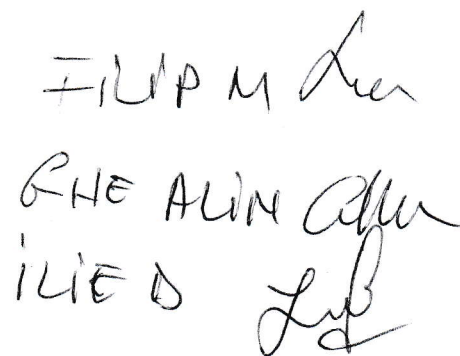 FILIP M
GHE ALIN
ILIE D